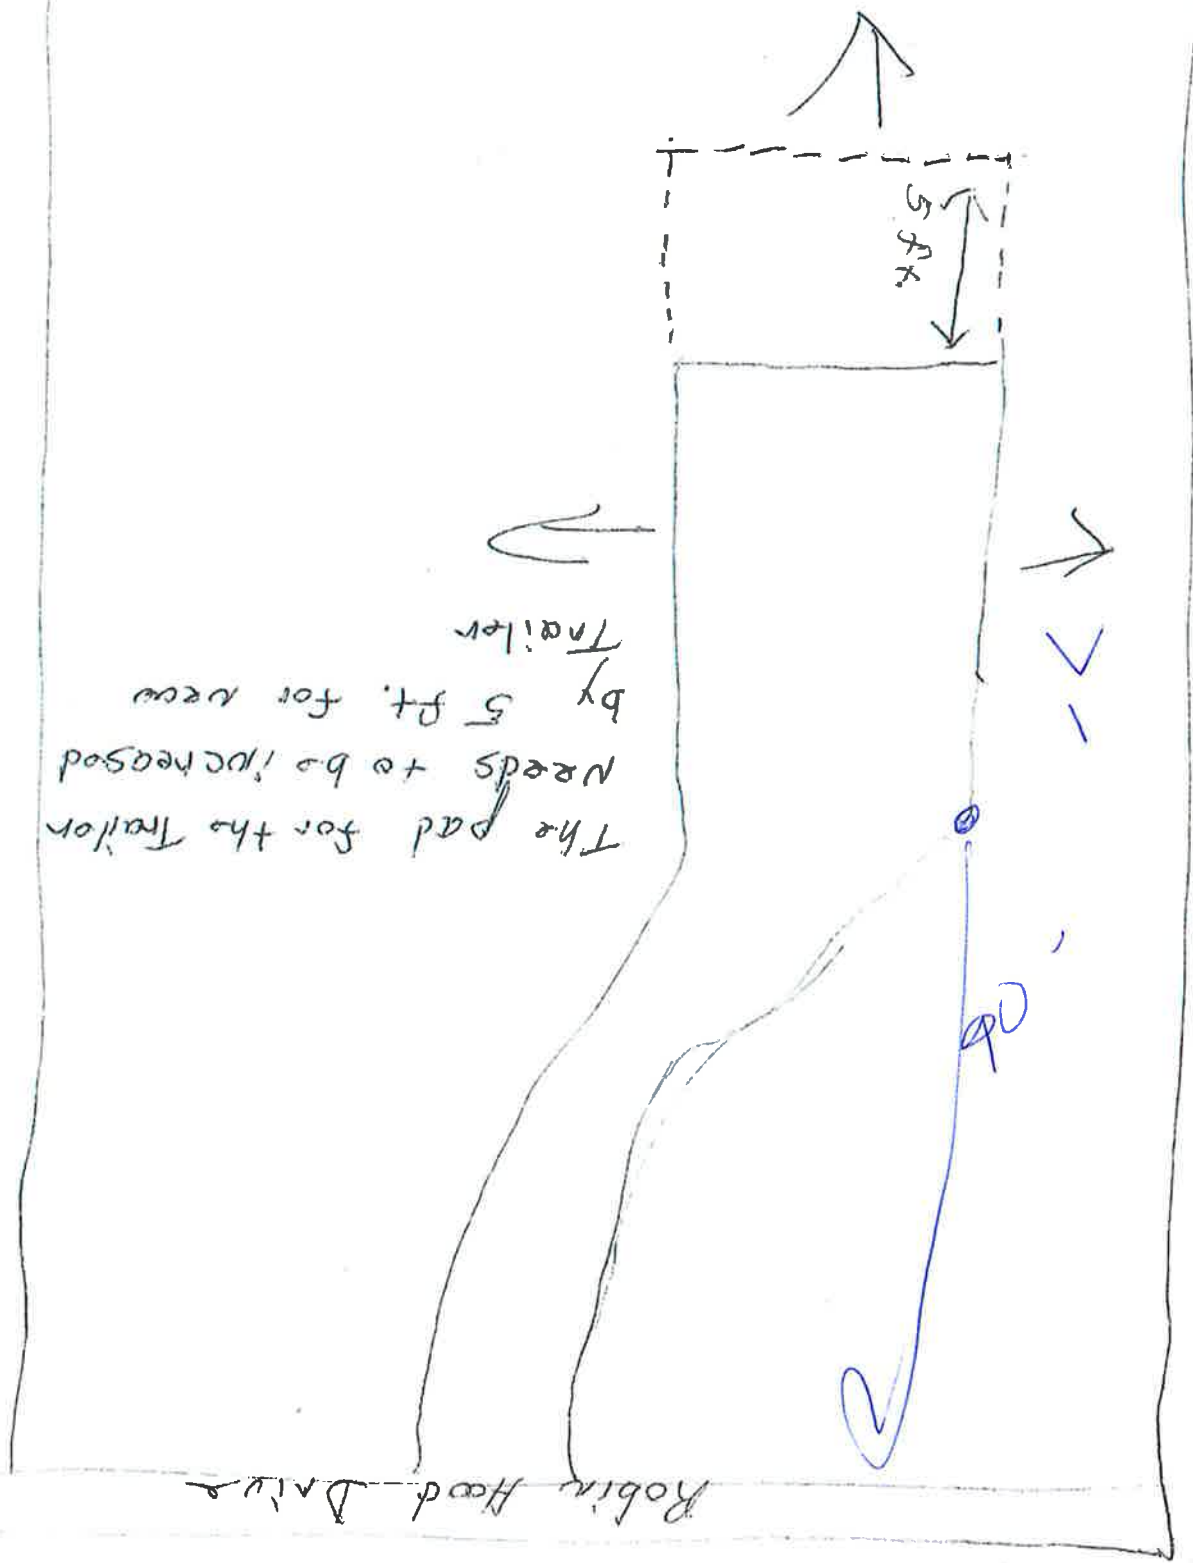 Robin Hood Drive
90'
The pad for the Trailer
needs to be increased
by 5 ft. for new
Trailer
5 ft.